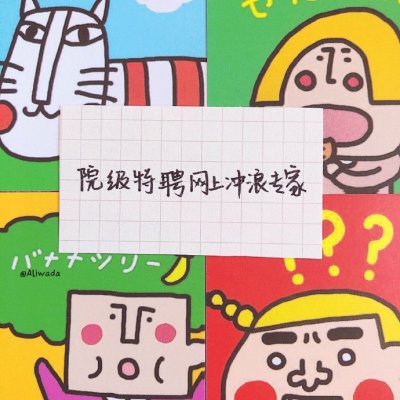 院级特聘网上冲浪专家
バナナツリー
@Aliwada
???